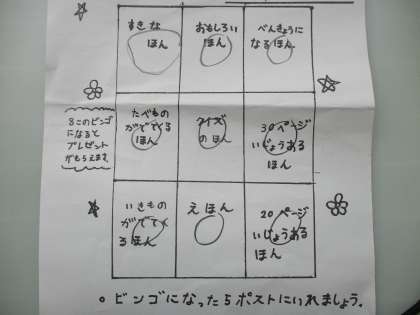 すきな
ほん
おもしろい
ほん
べんきょうに
なるほん
8このビンゴ
になると
プレゼント
がもらえます
たべもの
がでてくる
ほん
クイズ
のほん
30ページ
いじょうある
ほん
いきもの
がでてく
るほん
えほん
20ページ
いじょうある
ほん
ビンゴになったらポストにいれましょう。